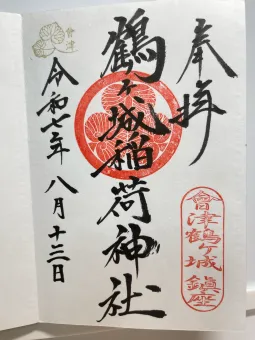 奉拝
鶴ヶ城稲荷神社
令和七年 八月十三日
會津鶴ヶ城 鎮座
會津